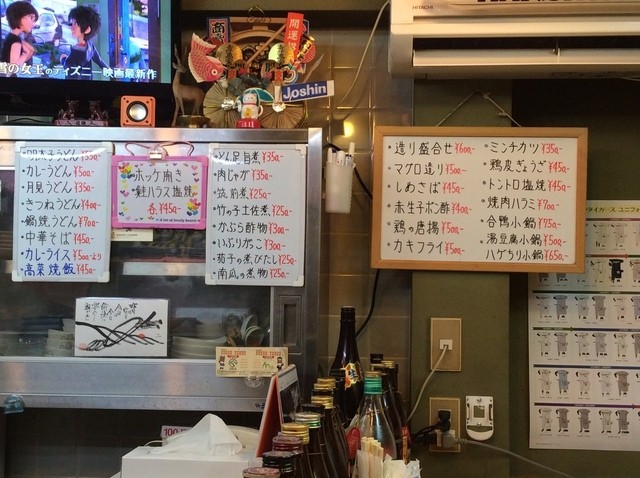 雪の女王のディズニー映画最新作
開運
Joshin
HITACHI
・カレーうどん¥500-
・月見うどん¥350-
・きつねうどん¥400-
・鍋焼うどん¥700-
・中華そば¥450-
・カレーライス¥500より
・高菜焼飯¥450-
・ホッケ開き
・鮭ハラス塩焼
各、¥450-
・どん足旨煮¥350-
・肉じゃが¥350-
・筑前煮¥250-
・竹の子土佐煮¥250-
・かぶら酢物¥300-
・いぶりがっこ¥300-
・茄子の煮びたし¥250-
・南瓜の煮物¥250-
・造り盛合せ¥600-
・マグロ造り¥500-
・しめさば¥450-
・赤生子ポン酢¥400-
・鶏の唐揚¥500-
・カキフライ¥500-
・ミンチカツ¥350-
・鶏皮ぎょうざ¥450-
・トントロ塩焼¥450-
・焼肉ハラミ¥700-
・合鴨小鍋¥750-
・湯豆腐小鍋¥500-
・ハゲちり小鍋¥650-